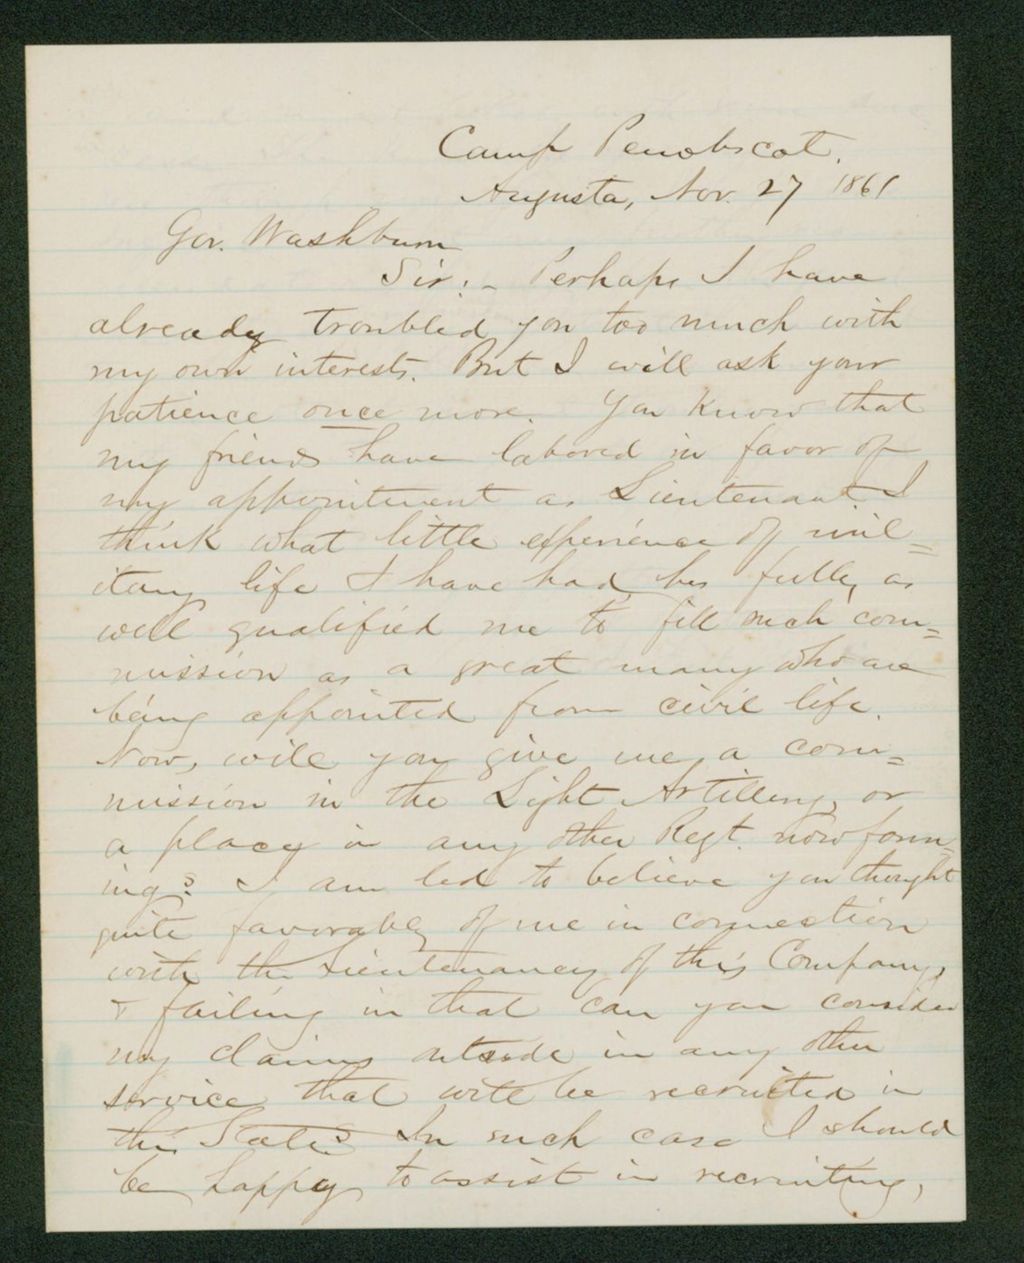 Camp Penobscot.
Augusta, Nov. 27 1861
Gov. Washburn
Sir:- Perhaps I have
already troubled you too much with
my own interests. But I will ask your
patience once more. You know that
my friends have labored in favor of
my appointment as Lieutenant I
think what little experience of mil=
itary life I have had has fully as
well qualified me to fill such com=
mission as a great many who are
being appointed from civil life.
Now, will you give me a com=
mission in the Light Artillery, or
a place in any other Regt. now form=
ing? I am led to believe you thought
quite favorably of me in connection
with the Lieutenancy of this Company,
& failing in that can you consider
my claims outside in any other
service that will be recruited in
this State? In such case I should
be happy to assist in recruiting,